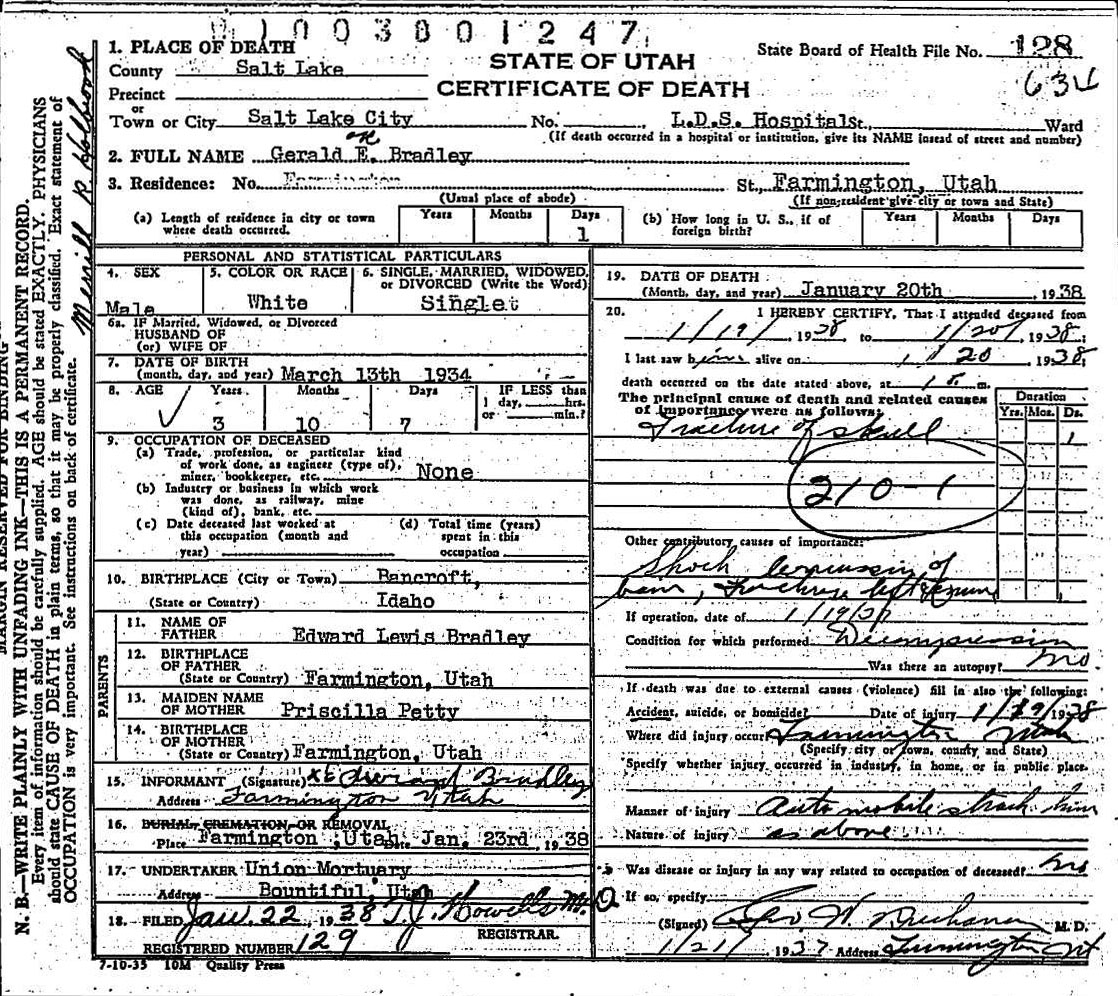 0 1 0 0 3 8 0 1 2 4 7
1. PLACE OF DEATH
County Salt Lake
STATE OF UTAH
State Board of Health File No. 128
634
Precinct
CERTIFICATE OF DEATH
or
Town or City Salt Lake City No. L.D.S. Hospital St., Ward
(If death occurred in a hospital or institution, give its NAME insead of street and number)
2. FULL NAME Gerald E. Bradley
3. Residence: No. Farmington St., Farmington, Utah
(Usual place of abode) (If non-resident give city or town and State)
(a) Length of residence in city or town where death occurred. Years Months Days 1
(b) How long in U. S., if of foreign birth? Years Months Days
PERSONAL AND STATISTICAL PARTICULARS
4. SEX Male
5. COLOR OR RACE White
6. SINGLE, MARRIED, WIDOWED, or DIVORCED (Write the Word) Singlet
6a. IF Married, Widowed, or Divorced
HUSBAND OF
(or) WIFE OF
7. DATE OF BIRTH
(month, day, and year) March 13th 1934
8. AGE Years 3 Months 10 Days 7
IF LESS than
1 day, hrs.
or min.?
9. OCCUPATION OF DECEASED
(a) Trade, profession, or particular kind
of work done, as engineer (type of),
miner, bookkeeper, etc. None
(b) Industry or business in which work
was done, as railway, mine
(kind of), bank, etc.
(c) Date deceased last worked at
this occupation (month and
year)
(d) Total time (years)
spent in this
occupation
10. BIRTHPLACE (City or Town) Bancroft,
(State or Country) Idaho
PARENTS
11. NAME OF
FATHER Edward Lewis Bradley
12. BIRTHPLACE
OF FATHER
(State or Country) Farmington, Utah
13. MAIDEN NAME
OF MOTHER Priscilla Petty
14. BIRTHPLACE
OF MOTHER
(State or Country) Farmington, Utah
15. INFORMANT (Signature) x Edward Bradley
Address Farmington Utah
16. BURIAL, CREMATION, OR REMOVAL
Place Farmington, Utah Date Jan. 23rd, 1938
17. UNDERTAKER Union Mortuary
Address Bountiful, Utah
18. FILED Jan. 22, 1938 T.J. Howells M.D
REGISTRAR.
REGISTERED NUMBER 129
7-10-35 10M Quality Press
19. DATE OF DEATH
(Month, day, and year) January 20th, 1938
20. I HEREBY CERTIFY, That I attended deceased from
1/19/, 1938, to 1/20/, 1938.
I last saw him alive on 1/20 1938,
death occurred on the date stated above, at m.
The principal cause of death and related causes
of importance were as follows:
Duration
Yrs. Mos. Ds.
Fracture of skull 1
210-1
Other contributory causes of importance:
Shock
Fracture left
If operation, date of 1/19/
Condition for which performed Decompression
Was there an autopsy? no
If death was due to external causes (violence) fill in also the following:
Accident, suicide, or homicide? Date of injury 1/19/1938
Where did injury occur Farmington Utah
(Specify city or town, county and State)
Specify whether injury occurred in industry, in home, or in public place.
Manner of injury Automobile struck him
Nature of injury as above
Was disease or injury in any way related to occupation of deceased? no
If so, specify
(Signed) Geo. W. Buchanan M. D.
1/21/ 1937 Address Farmington Ut
MARGIN RESERVED FOR BINDING
N. B.—WRITE PLAINLY WITH UNFADING INK—THIS IS A PERMANENT RECORD.
Every item of information should be carefully supplied. AGE should be stated EXACTLY. PHYSICIANS
should state CAUSE OF DEATH in plain terms, so that it may be properly classified. Exact statement of
OCCUPATION is very important. See instructions on back of certificate.
Merrill R Holbrook